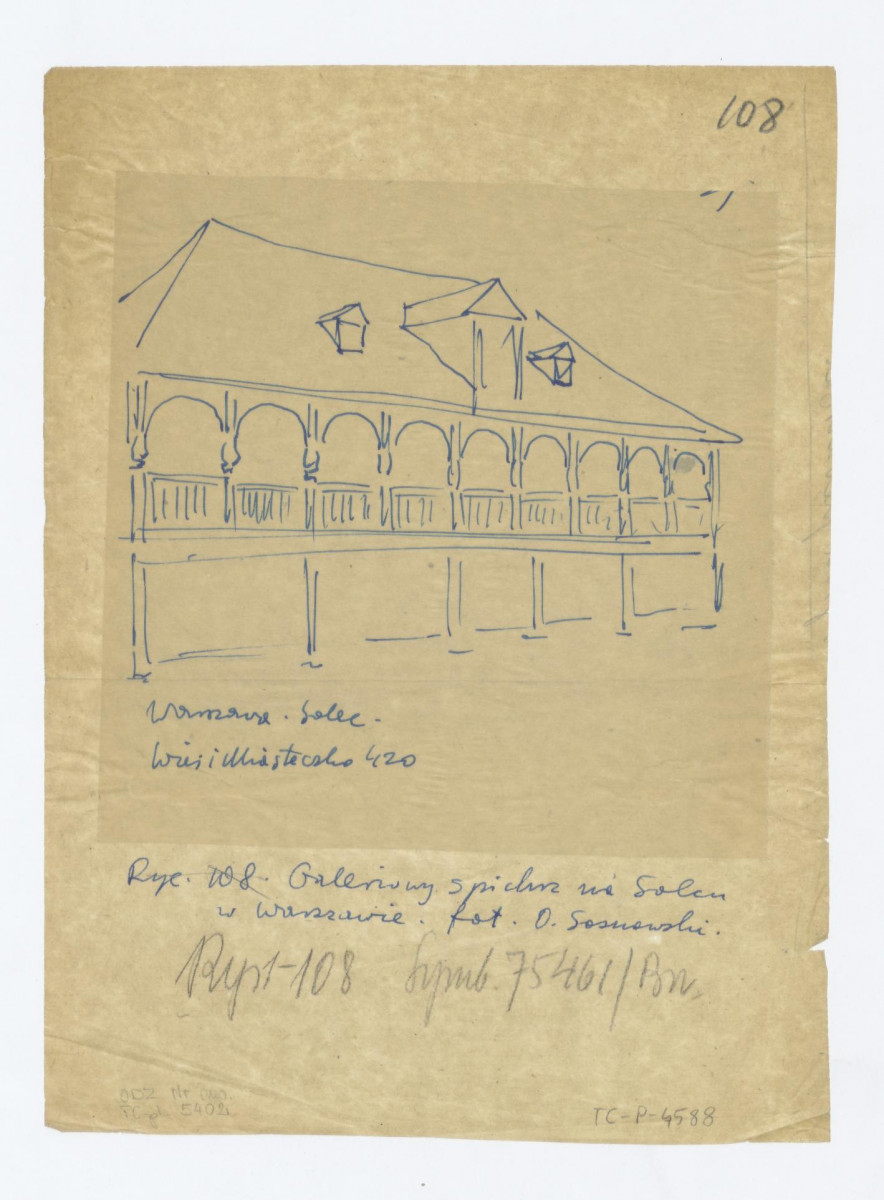 108
Warszawa. Solec.
Wieś i Miasteczko 420
Ryc. 108. Galeriowy spichrz na Solcu
w Warszawie. fot. O. Sosnowski.
Ryst-108 Symb. 75461/Bw.
Nr
5408
TC-P-4588